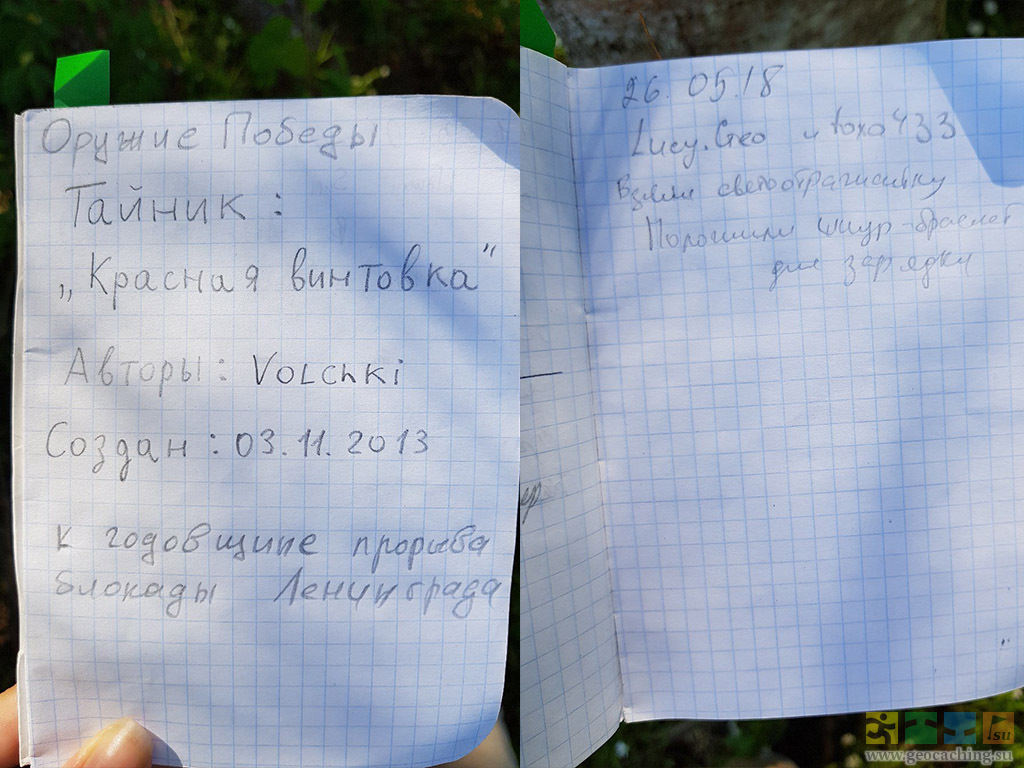 Оружие Победы
Тайник:
„Красная винтовка"
Авторы: Volchki
Создан: 03.11.2013
к годовщине прорыва
блокады Ленинграда
26.05.18
Lucy.Geo и foxo433
Взяли светоотражалку
Положили шнур-браслет
для зарядки
su
www.geocaching.su